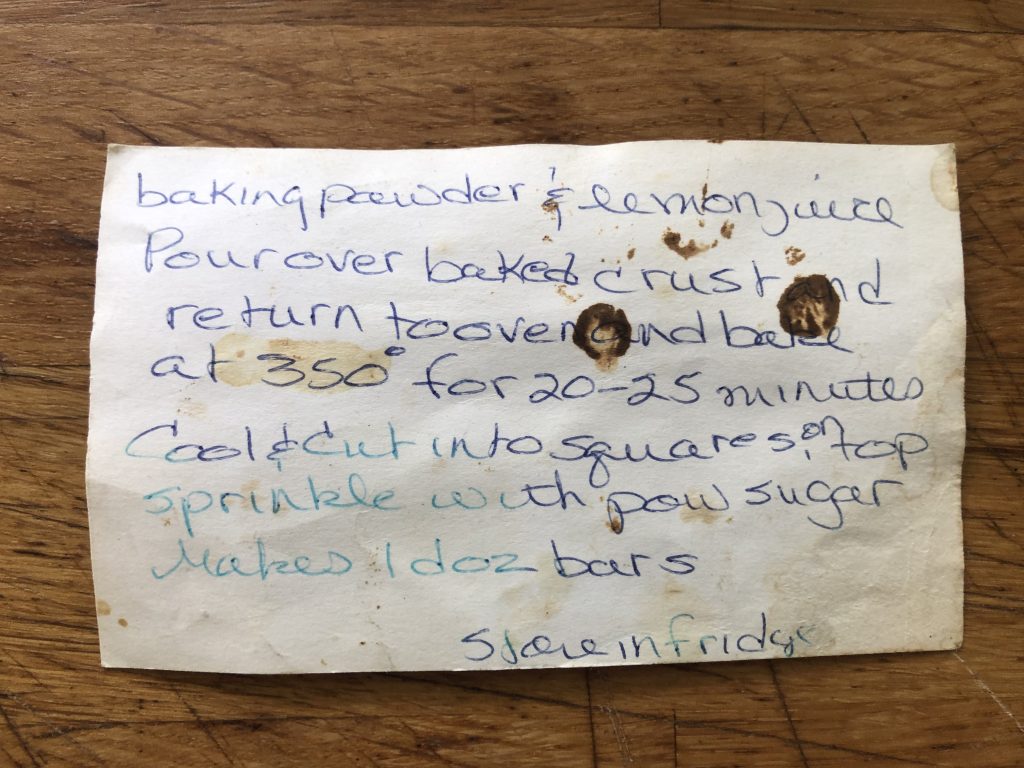 baking powder & lemon juice
Pour over baked crust and
return to oven and bake
at 350° for 20-25 minutes
Cool & Cut into squares, on top
sprinkle with pow sugar
Makes 1 doz bars
Store in fridge